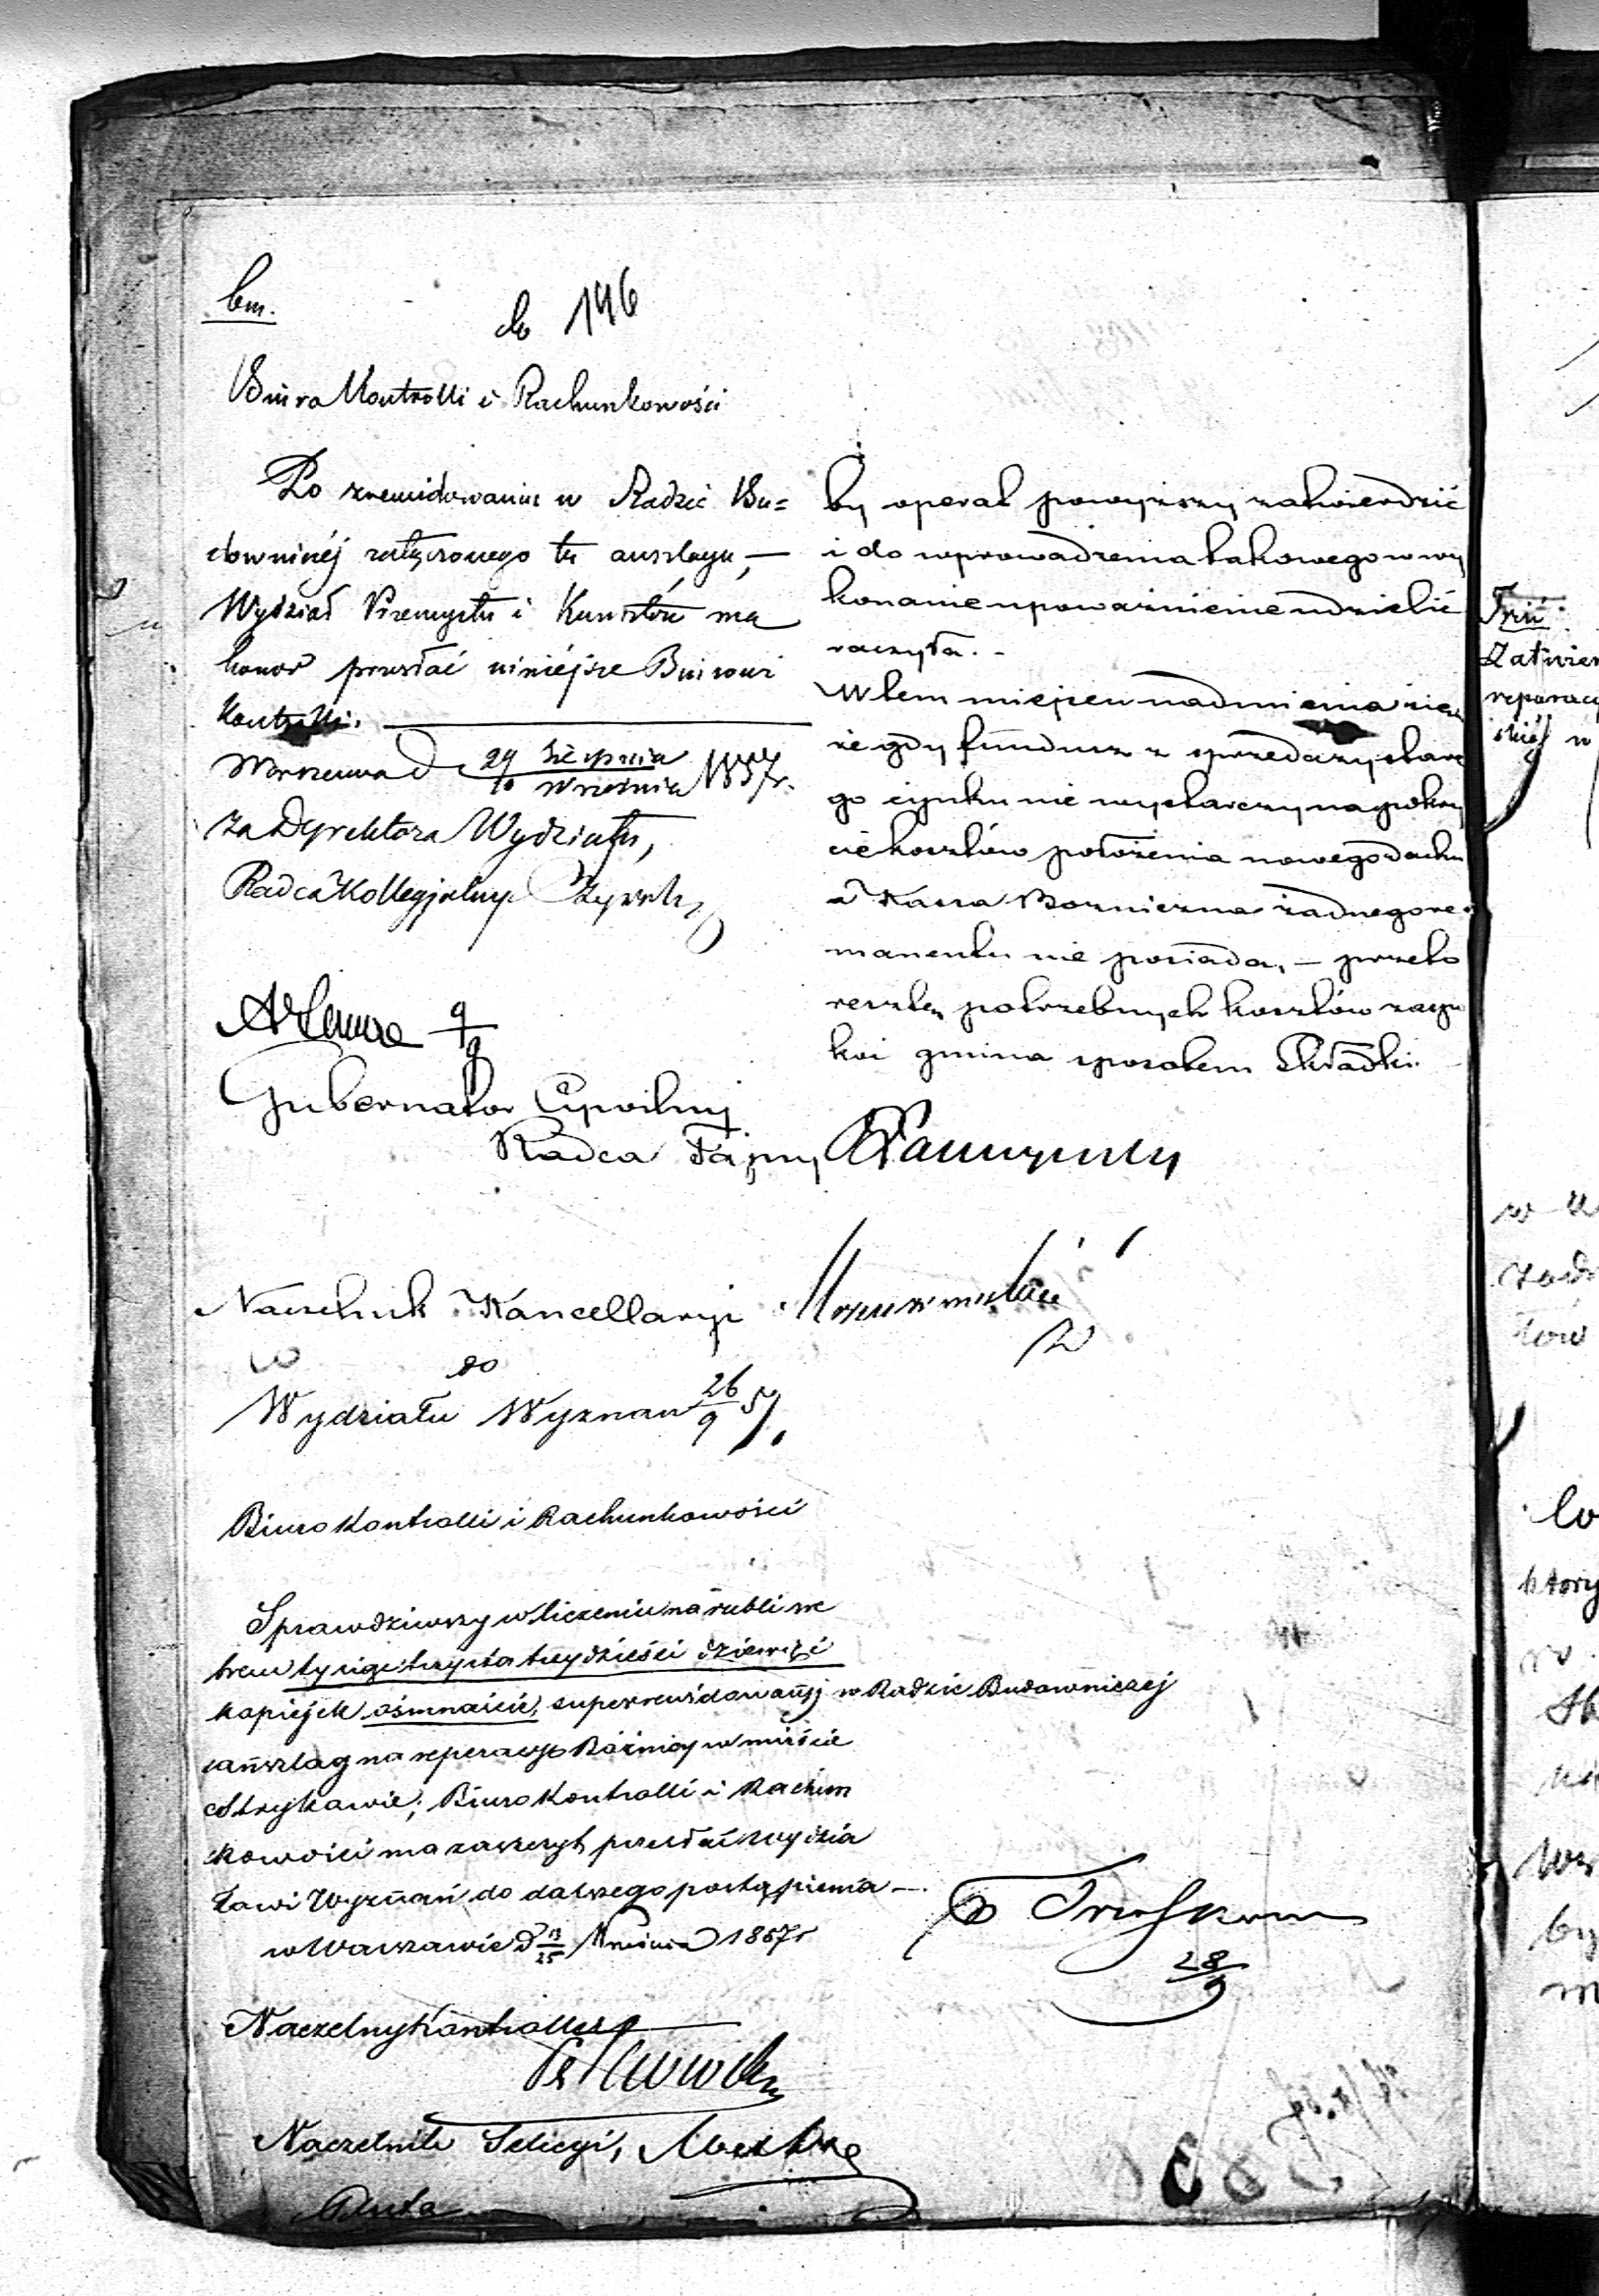 bm.
do 146
Biuro Kontrolli i Rachunkowości
Po zrewidowaniu w Radzie Bu=
downiczéj załączonego tu anszlagu, —
Wydział Przemysłu i Kunsztów ma
honor przesłać niniéjsze Biurowi
Kontrolli.
Warszawa d 29 Sierpnia / 10 Września 1857 r.
Za Dyrektora Wydziału,
Radca Kollegjalny
9/9
Gubernator Cywilny
Radca Tajny
Naczelnik Kancellaryi
do
Wydziału Wyznań 26/9 57.
by operat powyższy zatwierdzić
i do wprowadzenia takowego w wy
konanie upoważnienie udzielić
raczyła. -
W tem miejscu nadmienia się
że gdy fundusz z sprzedaży stare
go cynku nie wystarczy na pokry
cie kosztów położenia nowego dachu
a Kassa Bożniczna żadnego re
manentu nie posiada, — przeto
resztę potrzebnych kosztów zaspo
koi gmina sposobem Składki.
Biuro Kontrolli i Rachunkowości
Sprawdziwszy w liczeniu na rubli sre
brem tysiąc trzysta trzydzieści dziewięć
kopiejek ośmnaście, superrewidowany w Radzie Budowniczej
anszlag na reperacyę Bóżnicy w mieście
Strykowie; Biuro Kontrolli i Rachun
kowości ma zaszczyt przesłać Wydzia
łowi Wyznań do dalszego postąpienia —.
w Warszawie d 13/25 Września 1857 r
28/9
Naczelny Kontroller
Naczelnik Sekcyi,